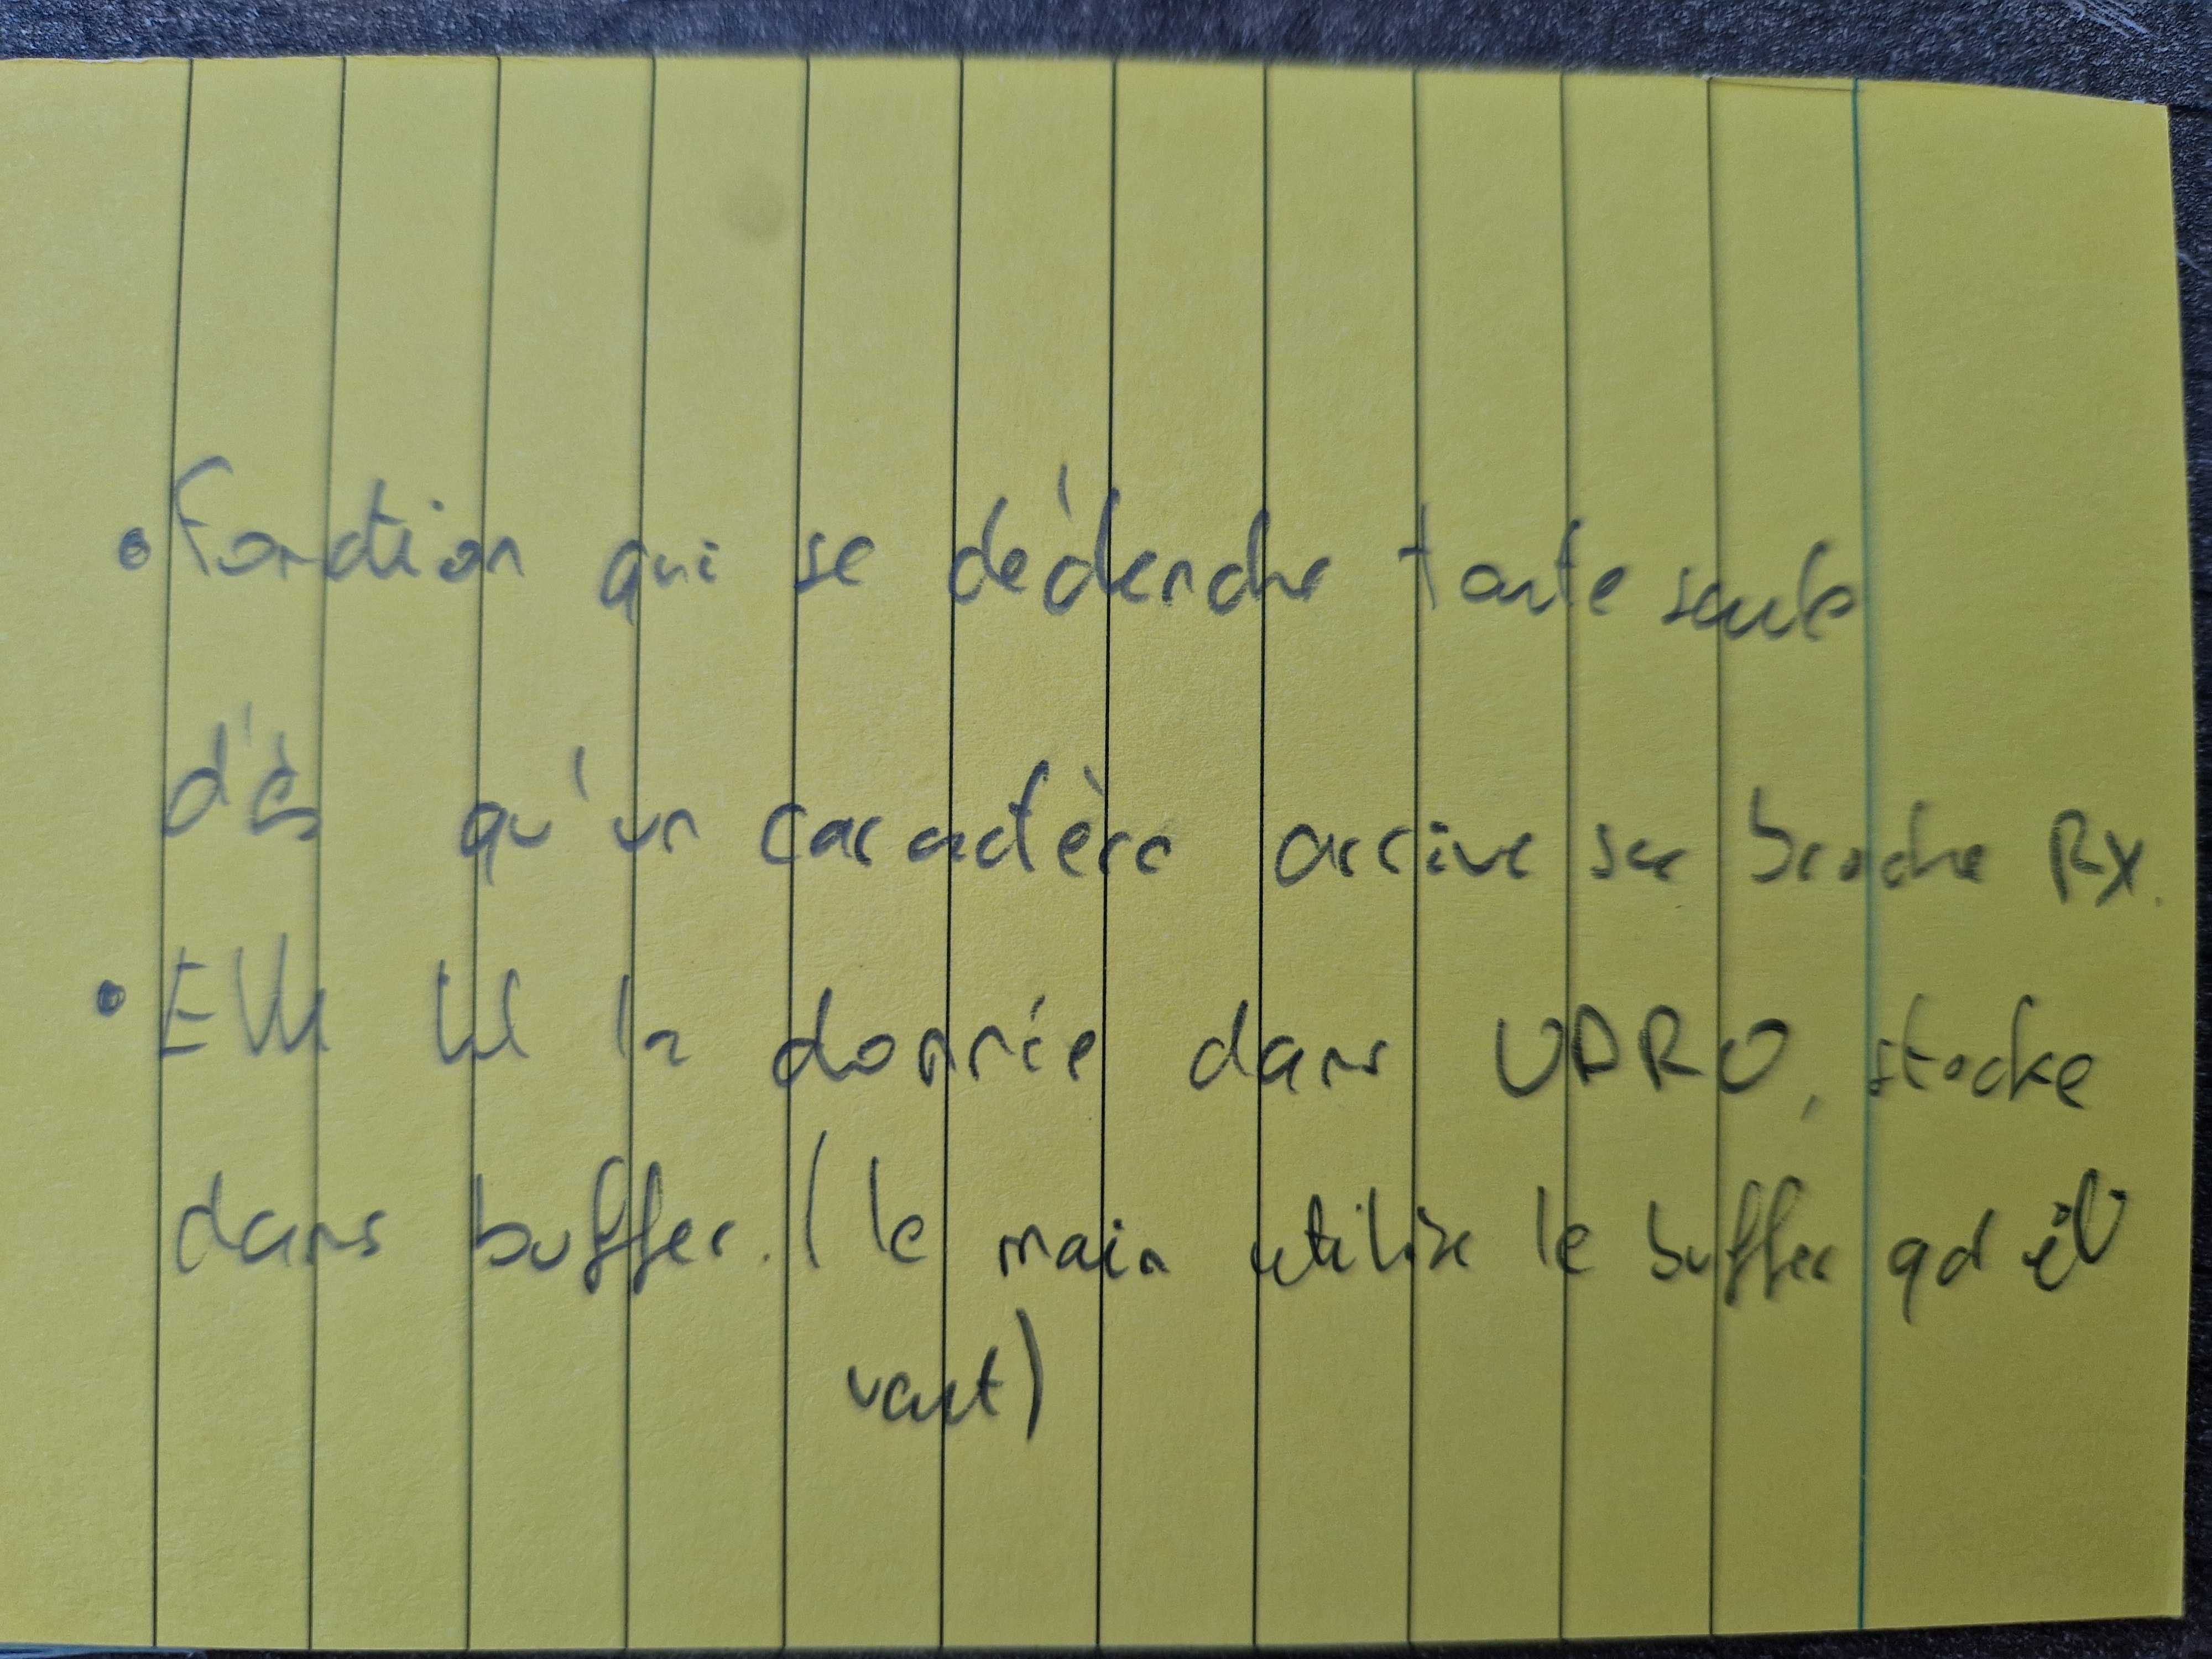 • Fonction qui se déclenche toute seule
dès qu'un caractère arrive sur broche RX.
• Elle lit la donnée dans UDR0, stocke
dans buffer. (le main utilise le buffer qd il
veut)